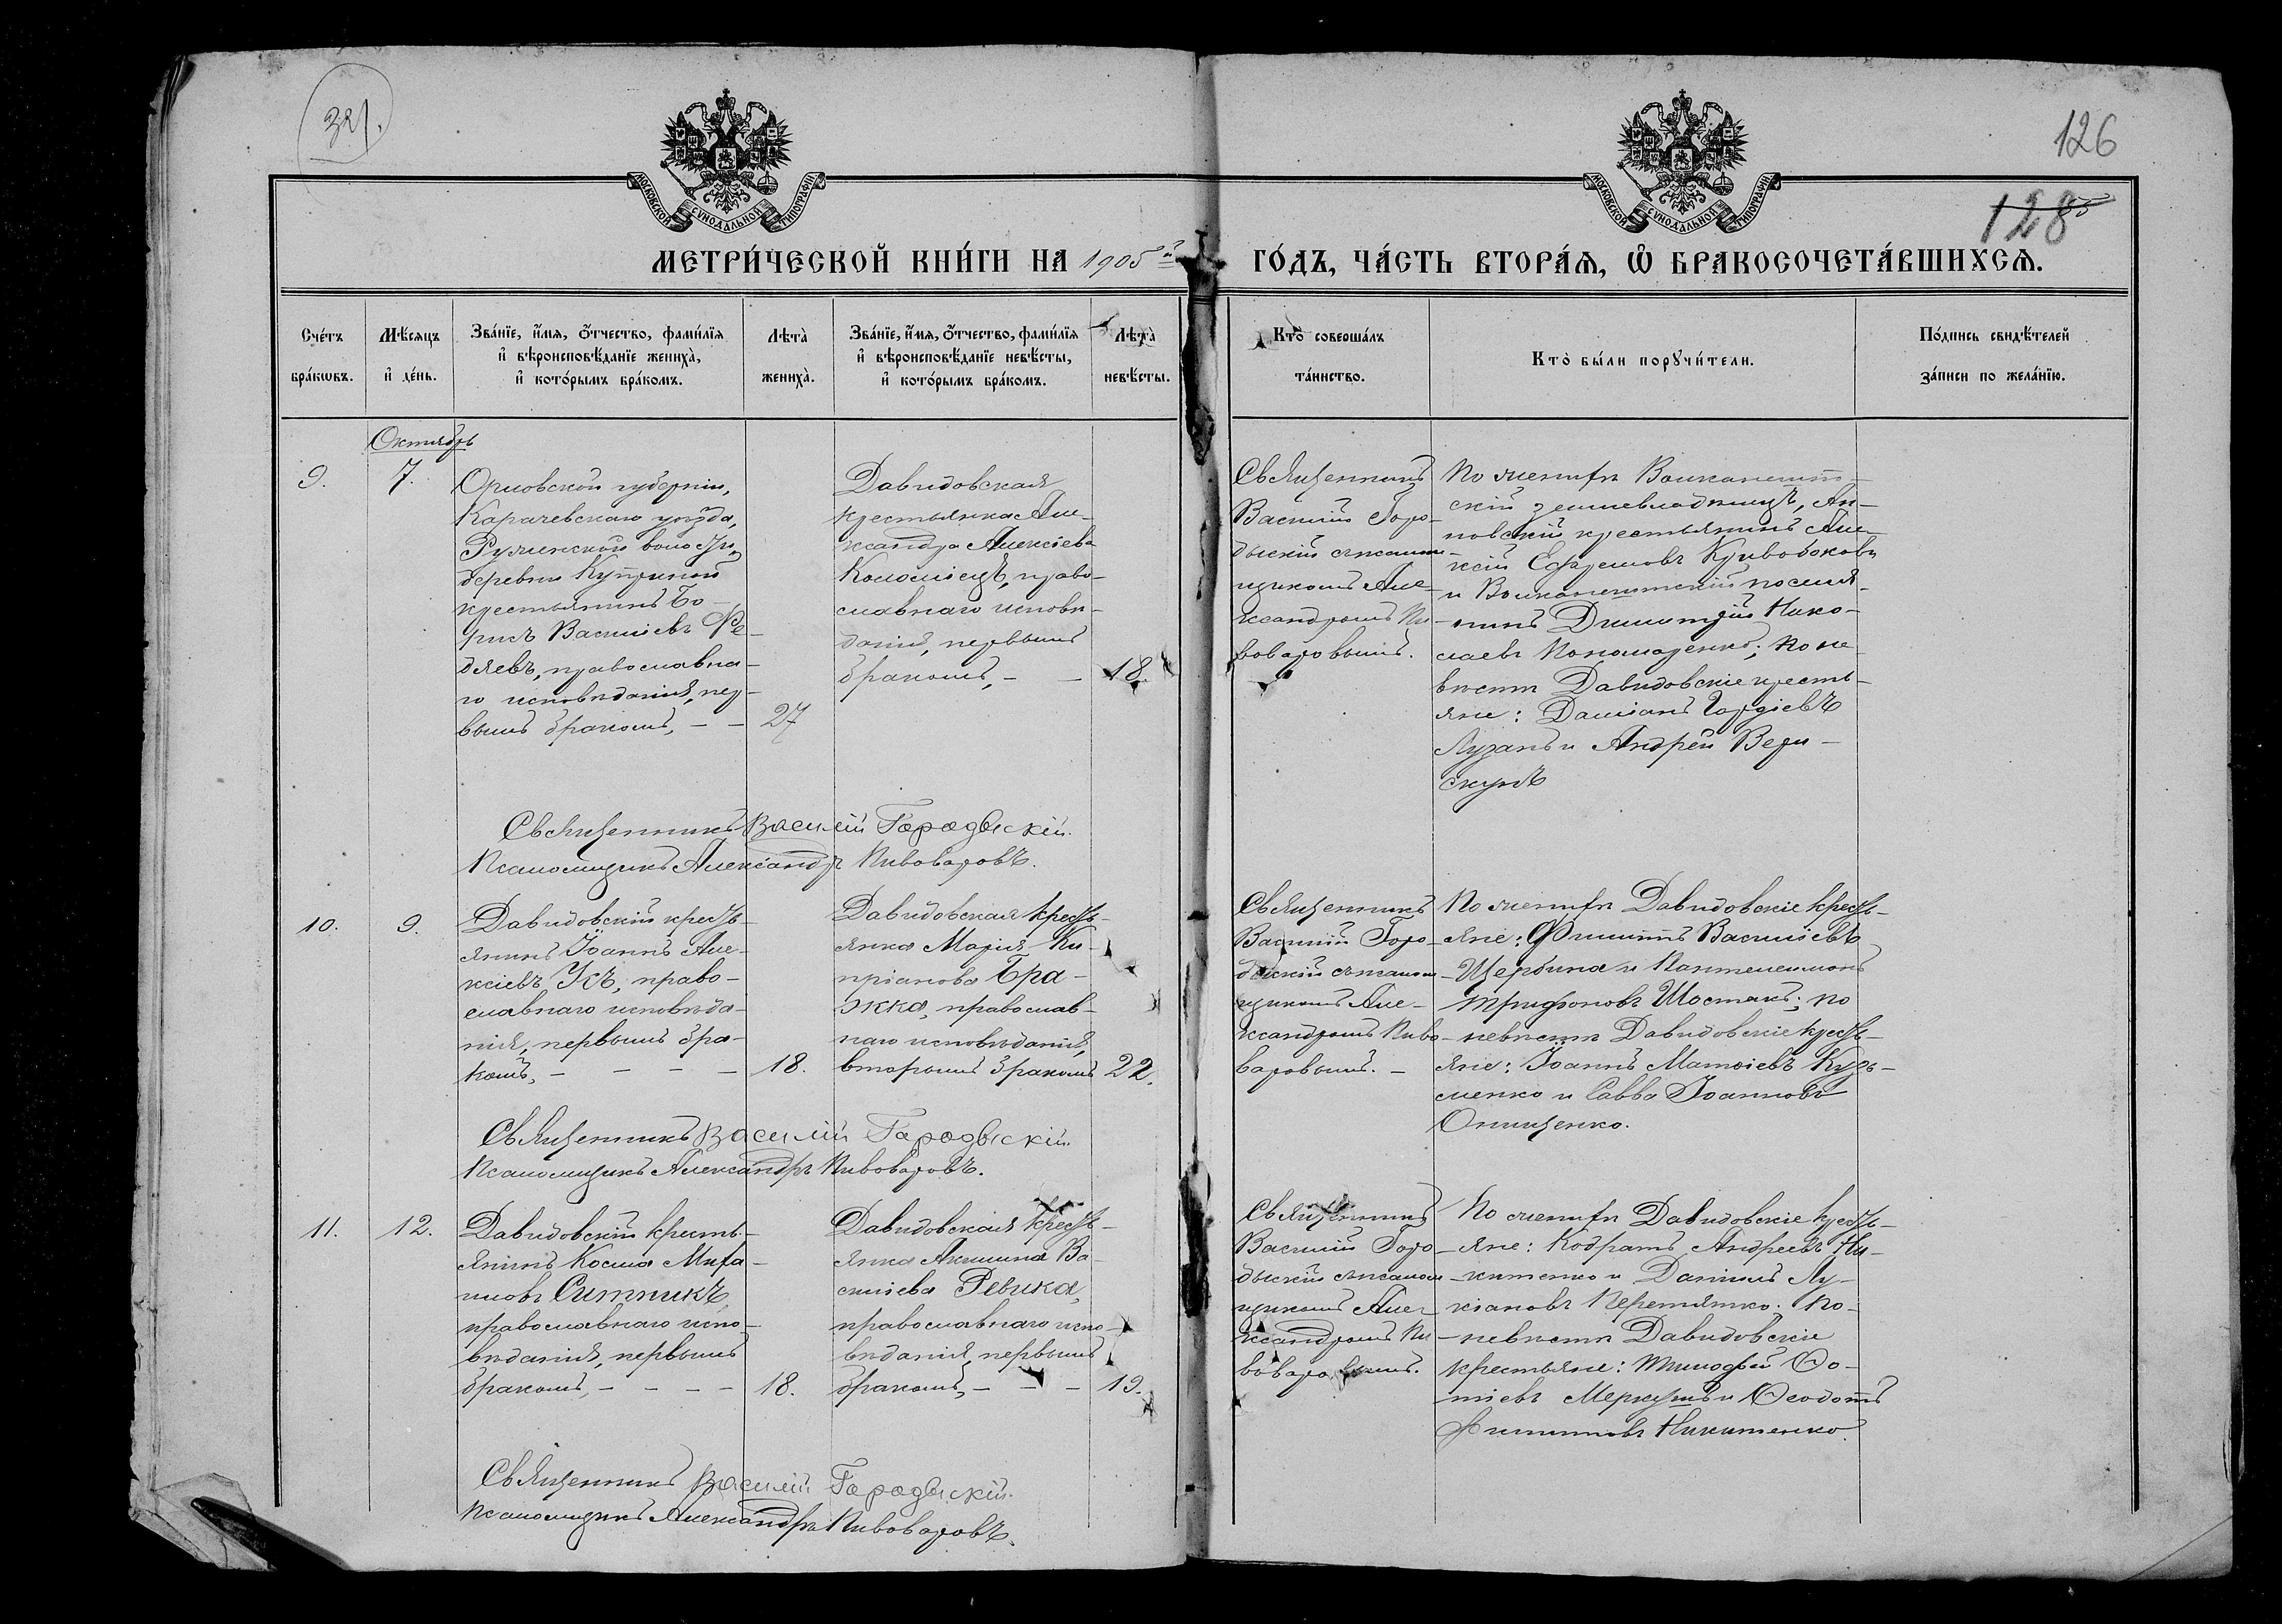 321.
126
128
МОСКОВСКОЙ СѴНОДАЛЬНОЙ ТИПОГРАФІИ
МОСКОВСКОЙ СѴНОДАЛЬНОЙ ТИПОГРАФІИ
МЕТРИ́ЧЕСКОЙ КНИ́ГИ НА 1905й ГО́ДЪ, ЧА́СТЬ ВТОРА́Ѧ, Ѽ БРАКОСОЧЕТА́ВШИХСѦ.
Сче́тъ
бра́кѡвъ.
Мѣ́сѧцъ
и҆ де́нь.
Зва́нїе, и҆́мѧ, ѻ҆́тчество, фами́лїѧ
и҆ вѣроисповѣ́данїе жениха̀,
и҆ кото́рымъ бра́комъ.
Лѣта̀
жениха̀.
Зва́нїе, и҆́мѧ, ѻ҆́тчество, фами́лїѧ
и҆ вѣроисповѣ́данїе невѣ́сты,
и҆ кото́рымъ бра́комъ.
Лѣта̀
невѣ́сты.
Кто̀ соверша́лъ
та́инство.
Кто̀ бы́ли порꙋчи́тели.
По́дпись свидѣ́телей
за́писи по жела́нїю.
Октябрь
9.
7.
Орловской губерніи,
Карачевскаго уѣзда,
волости,
деревни
крестьянинъ Бо-
рисъ Василіевъ Фе-
дяевъ, православна-
го исповѣданія, пер-
вымъ бракомъ, – –
27
Давидовская
крестьянка Але-
ксандра Алексіева
Коломіецъ, право-
славнаго исповѣ-
данія, первымъ
бракомъ, – –
18.
Священникъ
Василій Горо-
дыскій съ псалом-
щикомъ Але-
ксандромъ Пи-
воваровымъ.
По женихѣ
скій землевладѣлецъ,
новскій крестьянинъ Але-
ксій Ефремовъ Кривобоковъ
и поселя-
нинъ Димитрій Нико-
лаевъ Пономаренко; по не-
вѣстѣ Давидовскіе кресть-
яне: Даміанъ Гордіевъ
Лузанъ и Андрей Вери-
скунъ
Священникъ Василій Городыскій.
Псаломщикъ Александръ Пивоваровъ.
10.
9.
Давидовскій кресть-
янинъ Іоаннъ Але-
ксіевъ Усъ, право-
славнаго исповѣда-
нія, первымъ бра-
комъ, – – – –
18.
Давидовская кресть-
янка Марія Ки-
пріанова Бра-
жка, православ-
наго исповѣданія,
вторымъ бракомъ
22.
Священникъ
Василій Горо-
дыскій съ псалом-
щикомъ Але-
ксандромъ Пиво-
варовымъ. –
По женихѣ Давидовскіе кресть-
яне: Филиппъ Василіевъ
Щербина и Пантелеимонъ
Трифоновъ Шостакъ; по
невѣстѣ Давидовскіе кресть-
яне: Іоаннъ Матѳіевъ Кузь-
менко и Савва Іоанновъ
Онищенко.
Священникъ Василій Городыскій.
Псаломщикъ Александръ Пивоваровъ.
11.
12.
Давидовскій кресть-
янинъ Косма Миха-
иловъ Ситникъ,
православнаго испо-
вѣданія, первымъ
бракомъ, – – – –
18.
Давидовская кресть-
янка Акилина Ва-
силіева Ревика,
православнаго испо-
вѣданія, первымъ
бракомъ, – – –
19.
Священникъ
Василій Горо-
дыскій съ псалом-
щикомъ Але-
ксандромъ Пи-
воваровымъ.
По женихѣ Давидовскіе кресть-
яне: Кодратъ Андреевъ Ни-
китенко и Даніилъ Лу-
кіановъ Перетятко; по
невѣстѣ Давидовскіе
крестьяне: Тимоѳей Ѳо-
тіевъ Меркушъ и Ѳеодотъ
Филипповъ Никитенко.
Священникъ Василій Городыскій.
Псаломщикъ Александръ Пивоваровъ.